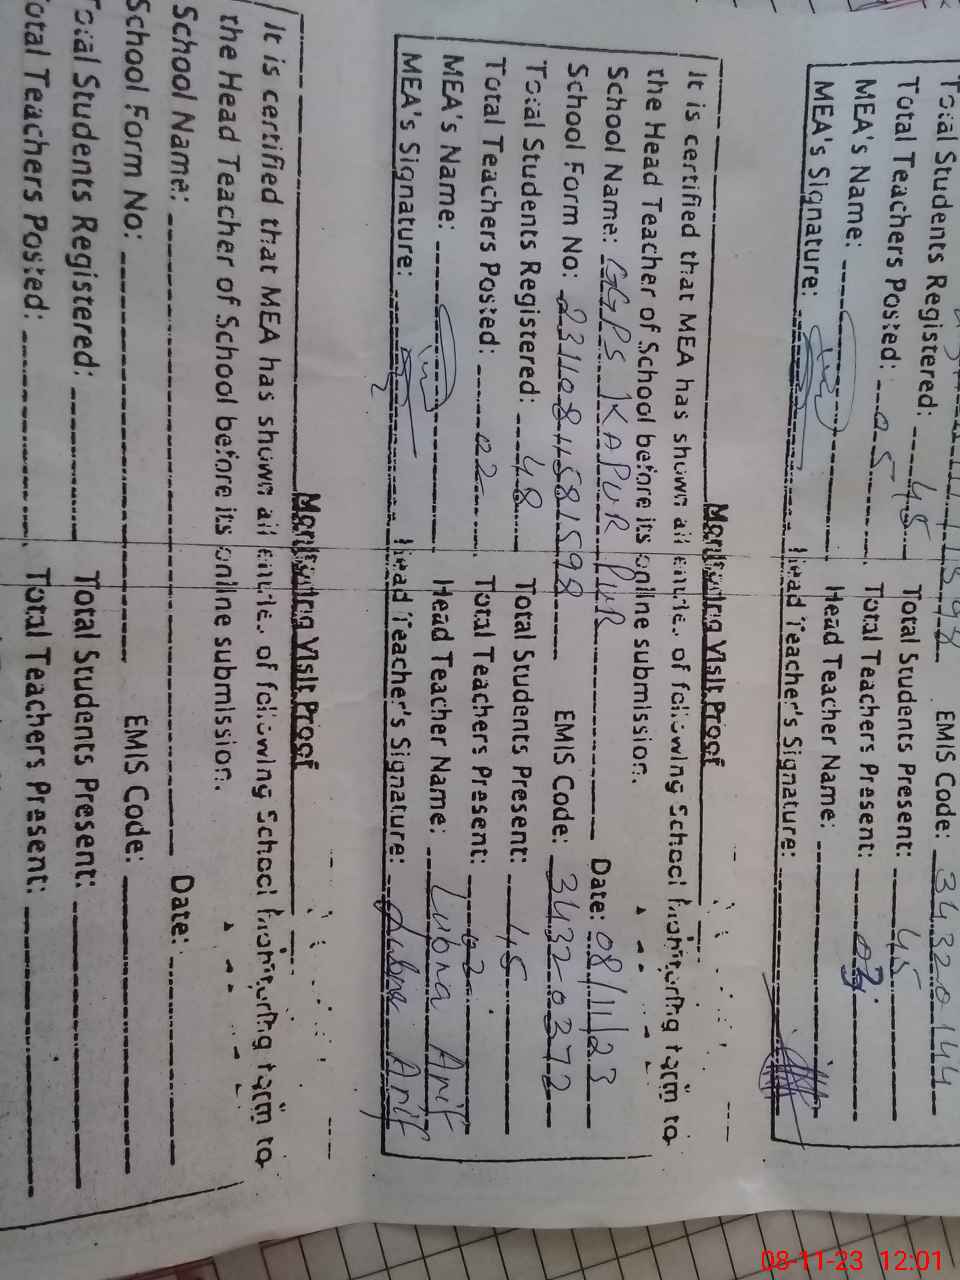 Total Students Registered: 48 Total Students Present: 45
Total Teachers Posted: 05 Total Teachers Present: 03
MEA's Name: Head Teacher Name:
MEA's Signature: Head Teacher's Signature:
EMIS Code: 34320144
Monitoring Visit Proof
It is certified that MEA has shown all entries of following School Monitoring form to
the Head Teacher of School before its online submission.
School Name: GGPS KAPUR PUR Date: 08/11/23
School Form No: 231108 EMIS Code: 34320372
Total Students Registered: 48 Total Students Present: 45
Total Teachers Posted: 02 Total Teachers Present: 02
MEA's Name: Head Teacher Name: Lubna Arif
MEA's Signature: Head Teacher's Signature: Lubna Arif
Monitoring Visit Proof
It is certified that MEA has shown all entries of following School Monitoring form to
the Head Teacher of School before its online submission.
School Name: Date:
School Form No: EMIS Code:
Total Students Registered: Total Students Present:
Total Teachers Posted: Total Teachers Present:
08-11-23 12:01